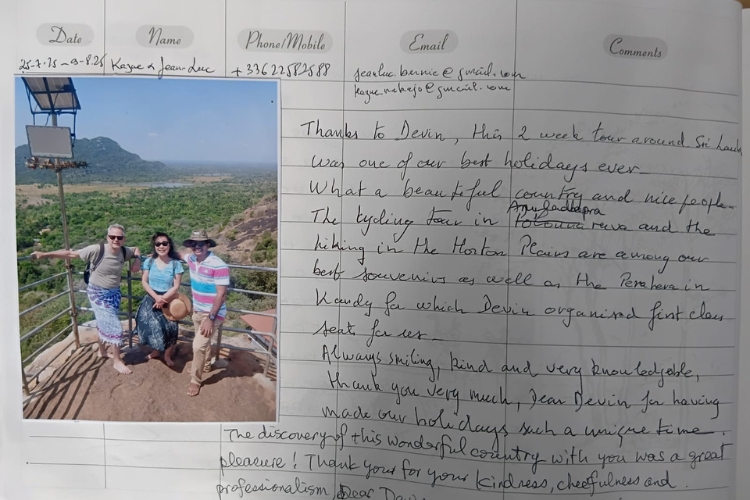 Date Name Phone/Mobile Email Comments
25-7.25 - 9-8.25 Kague & Jean-Luc +33622582588 jeanluc bernic@gmail.com
Thanks to Devin, this 2 week tour around Sri Lanka
was one of our best holidays ever.
What a beautiful country and nice people.
Anuradapra
The cycling tour in and the
hiking in the Horton Plains are among our
best souvenirs as well as the Perahera in
Kandy for which Devin organised first class
seats for us.
Always smiling, kind and very knowledgeable,
thank you very much, Dear Devin for having
made our holidays such a unique time.
The discovery of this wonderful country with you was a great
pleasure! Thank your for your kindness, cheefulness and
professionalism, Dear